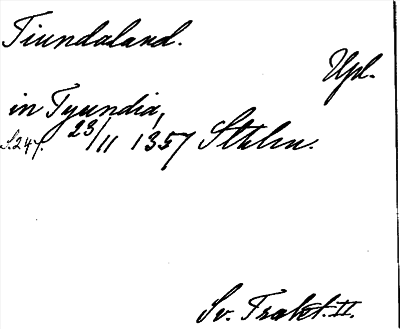 Tiundaland.
Upl.
in Tyundia,
S. 247. 23/11 1357 Sthlm.
Sv. Trakt. II.